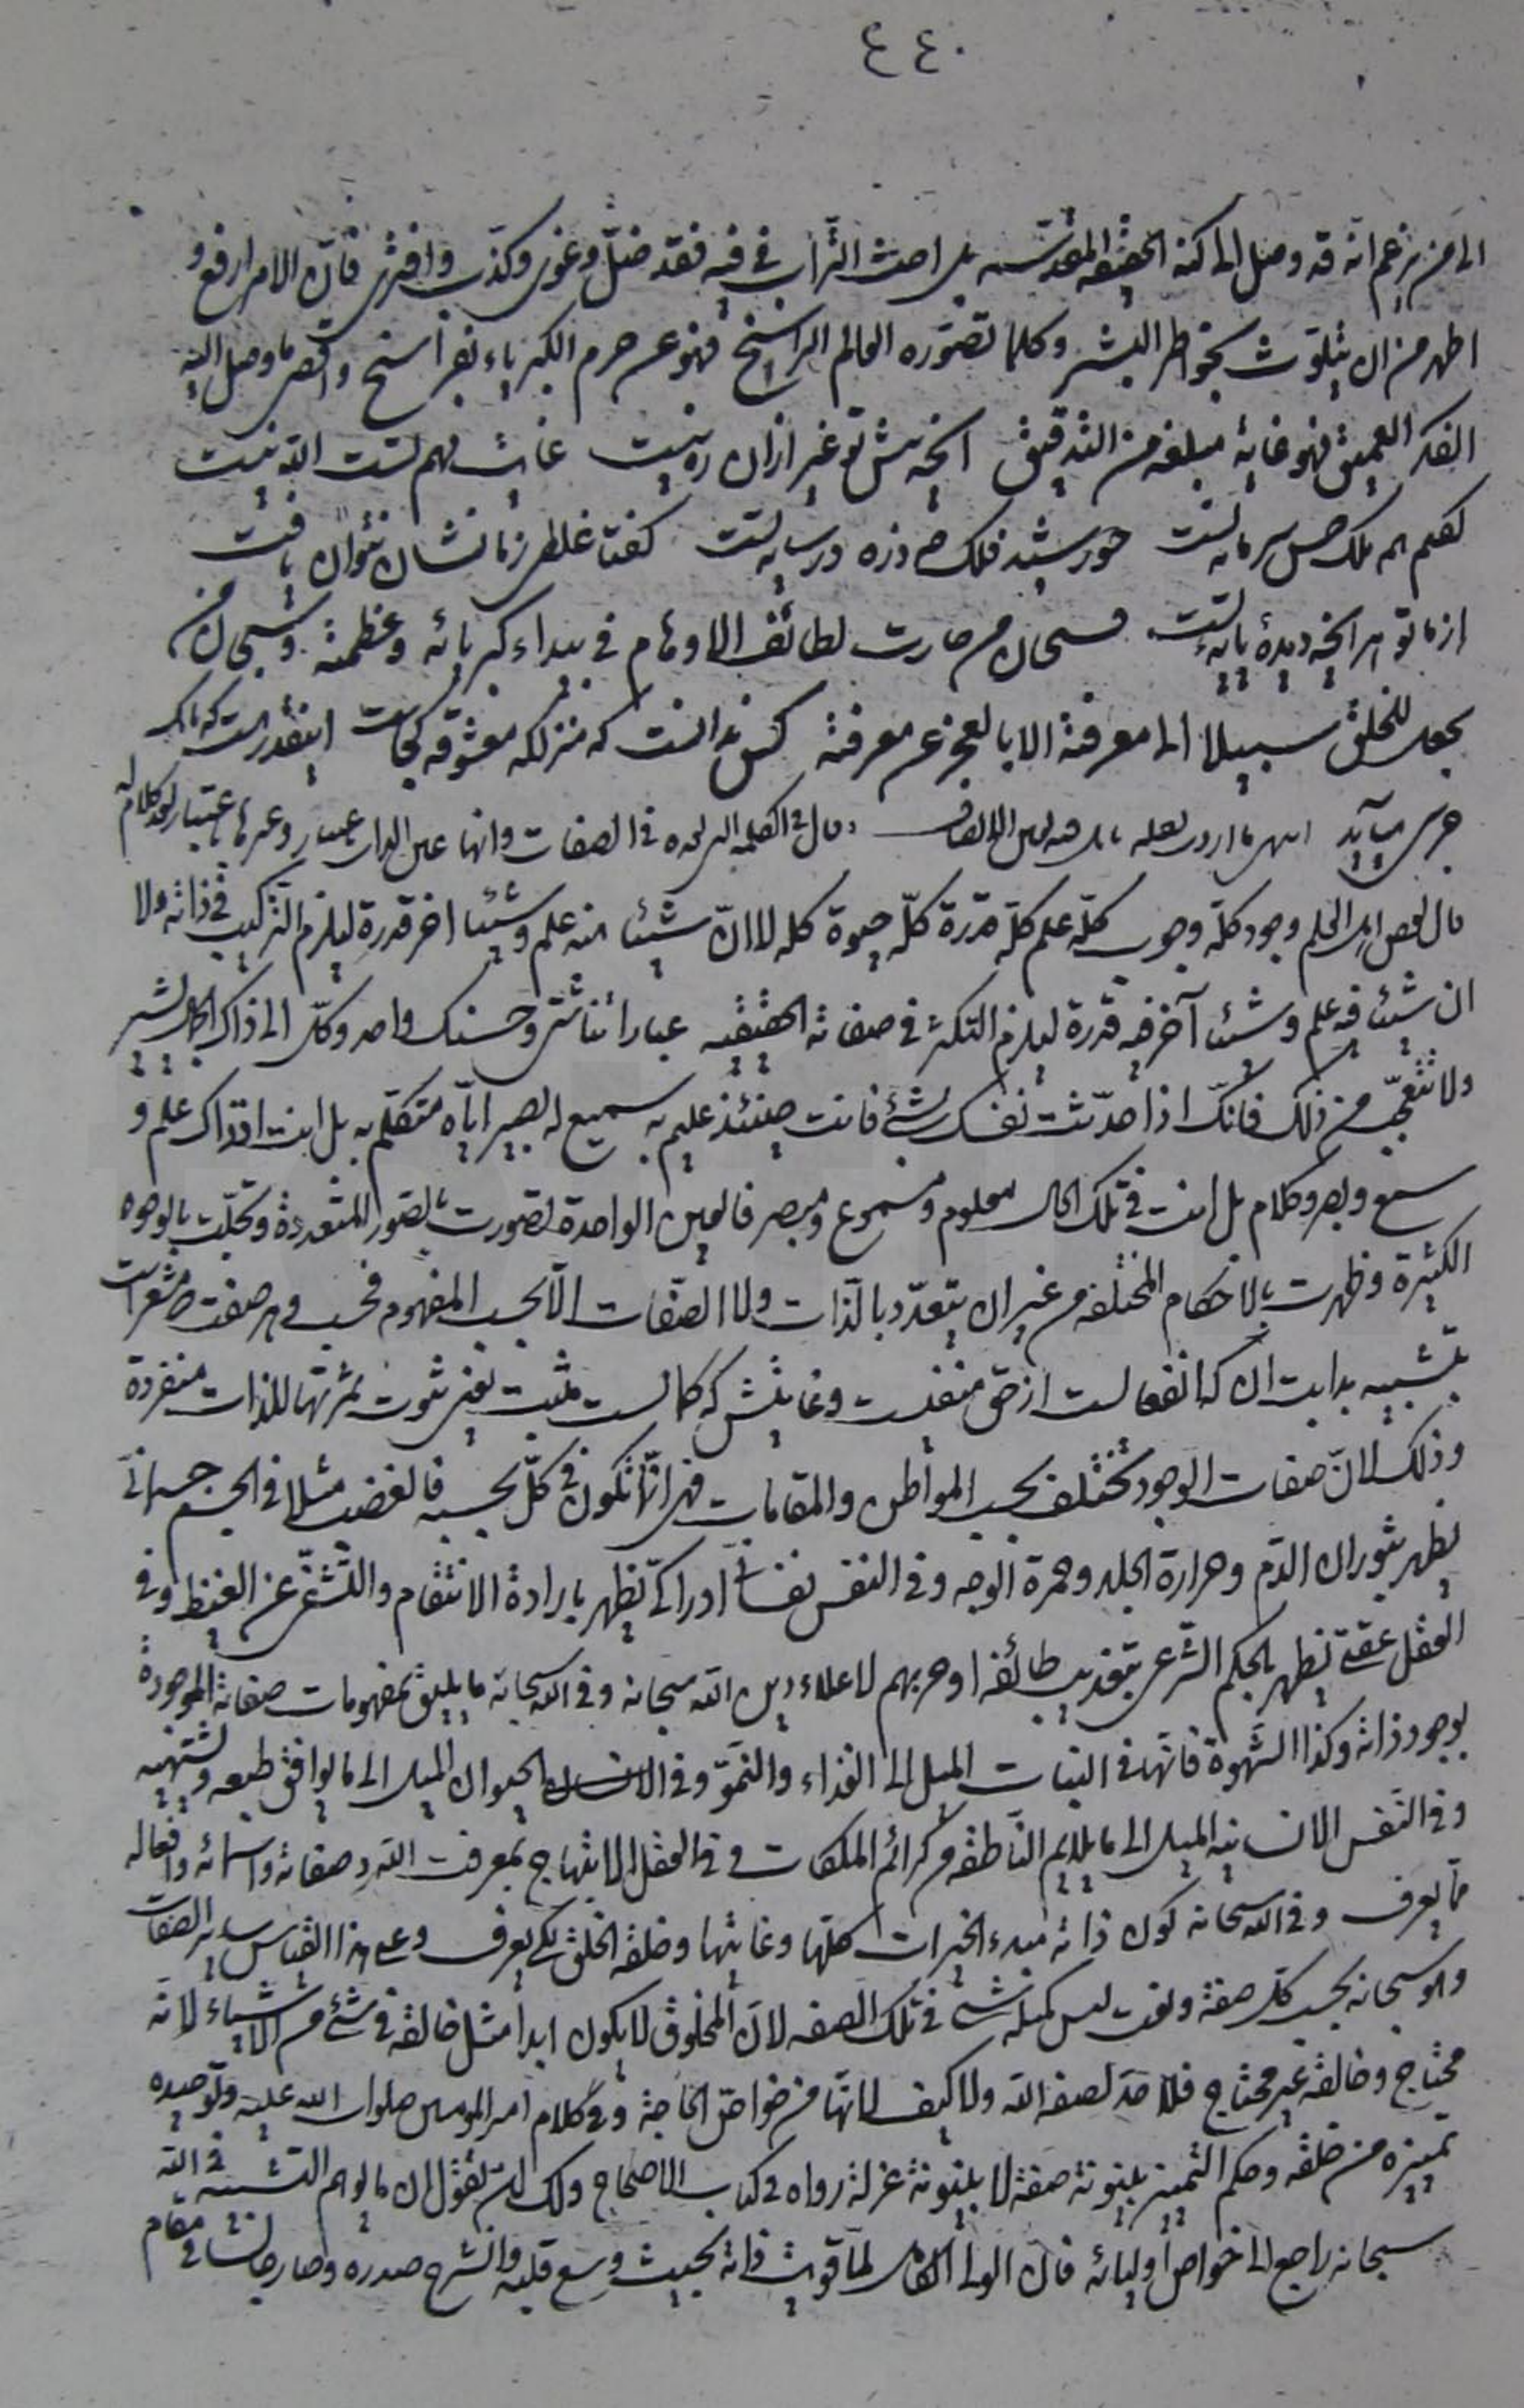 ٤٤٠
الى من يزعم انه قد وصل الى كنه الحقيقة المقدسة بل احث التراب في فيه فقد ضلّ وغوى وكذب وافترى فانّ الامر ارفع و
اطهر من ان يتلوث بخواطر البشر وكلما تصوّره العالم الراسخ فهو عن حرم الكبرياء بفراسخ واقصى ما وصل اليه
الفكر العميق فهو غاية مبلغه من التدقيق آنچه پیش تو غير ازان ره نيست غايت فهم تست الله نيست
گفتم همه ملك حسن سرمايه تست خورشيد فلك چو ذره در سايه تست گفتا غلطى ز ما نشان نتوان يافت
از ما تو هر آنچه ديدهٔ پايهٔ تست فسبحان من حارت لطائف الاوهام في بيداء كبريائه وعظمته وسبحان من
يجعل للخلق سبيلا الى معرفته الا بالعجز عن معرفته كس ندانست كه منزلگه معشوقه كجاست اينقدر هست كه بانگ
جرسى مى آيد انتهى ما اردنا نقله وقال في في الصفات وانها عين الذات
قال بعض اهل العلم وجود كلّه وجوب كلّه علم كلّه قدرة كلّه حيوة كله لا انّ شيئا منه علم وشيئا اخر قدرة ليلزم التركيب في ذاته ولا
ان شيئا فيه علم وشيئا آخر فيه قدرة ليلزم التكثر في صفاته الحقيقيه عباراتنا شتى وحسنك واحد وكل الى ذاك الجمال يشير
ولا تتعجّب من ذلك فانّك اذا حدّثت نفسك بشئ فانت حينئذ عليم به سميع له بصير اياه متكلّم به بل انت اذ ذاك علم و
سمع وبصر وكلام بل انت في تلك الحال معلوم ومسموع ومبصر فالعين الواحدة تصورت بالصّور المتعددة وتجلّت بالوجوه
الكثيرة وظهرت بالاحكام المختلفه من غير ان يتعدّد بالذات ولا الصّفات الّا بحسب المفهوم فحسب وهر صفت كه مشعر است
بتشبيه بدايت آن كه انفعالست از حق منفيست وغايتش كه كمالست مثبت يعنى ثبوت ثمرتها للذات منفردة
وذلك لانّ صفات الوجود تختلف بحسب المواطن والمقامات فهي انّما تكون في كلّ بحسبه فالغضب مثلا في الجسم جسمانيّ
يظهر بثوران الدّم وحرارة الجلد وحمرة الوجه وفي النفس نفسانيّ ادراكيّ يظهر بارادة الانتقام والتّشفّي عن الغيظ وفي
العقل عقليّ يظهر بالحكم الشّرعي بتعذيب طائفه او حربهم لاعلاء دين الله سبحانه وفي الله سبحانه ما يليق بمفهومات صفاته الموجودة
بوجود ذاته وكذا الشّهوة فانّها في النبات الميل الى الغذاء والنّموّ وفي الحيوان الميل الى ما يوافق طبعه ويشتهيه
وفي النّفس الانسانيه الميل الى ما يلايم النّاطقه من كرائم الملكات وفي العقل الابتهاج بمعرفت الله وصفاته واسمائه وافعاله
ما يعرف وفي الله سبحانه كون ذاته مبدء الخيرات كلّها وغايتها وخلقه الخلق لكي يعرف وعلى هذا القياس ساير الصفات
وهو سبحانه بحسب كلّ صفة ونعت ليس كمثله شئ في تلك الصفه لانّ المخلوق لا يكون ابدا مثل خالقه في شئ من الاشياء لانّه
محتاج وخالقه غير محتاج فلا حدّ لصفه الله ولا كيف لانّها من خواصّ الحاجة وفي كلام امير المؤمنين صلوات الله عليه وتوحيده
تمييزه من خلقه وحكم التّمييز بينونة صفة لا بينونة عزلة رواه في كتاب الاحتجاج ولك ان تقول ان ما يوهم التّشبيه في الله
سبحانه راجع الى خواصّ اوليائه فانّ الوليّ الكامل لمّا قويت ذاته بحيث وسع قلبه وانشرح صدره وصار جالسا في مقام